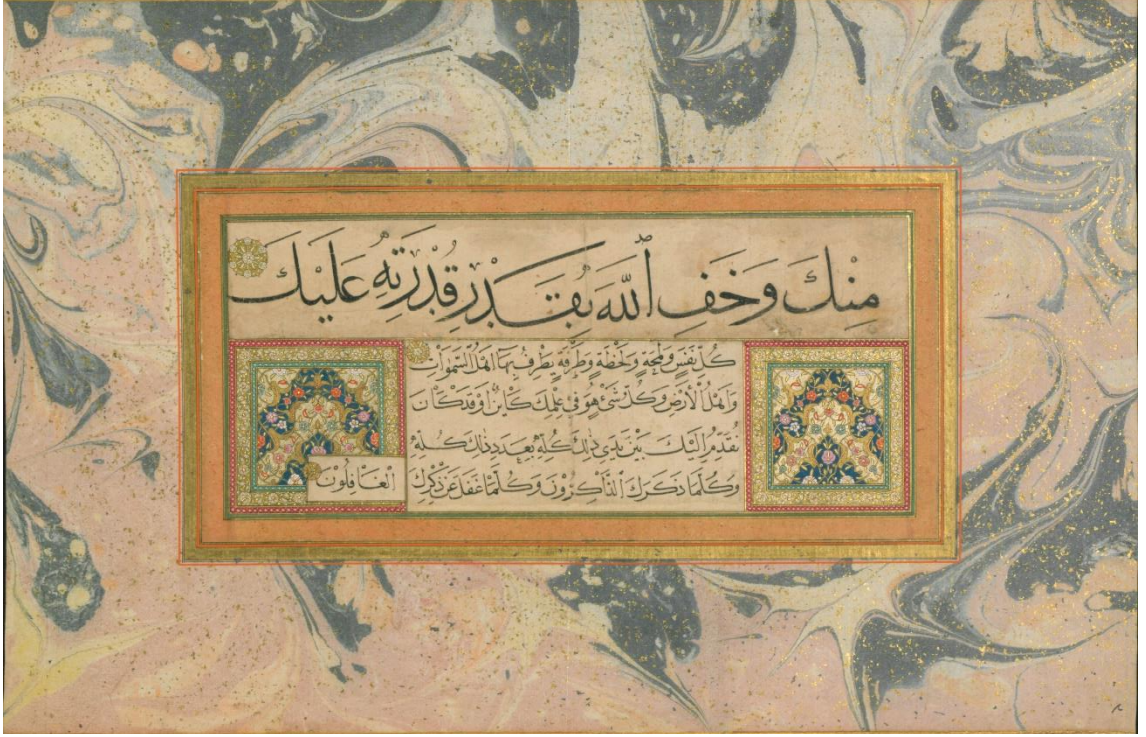 مِنْكَ وَخَفِ اللّٰهَ بِقَدْرِ قُدْرَتِهِ عَلَيْكَ
كُلِّ نَفَسٍ وَلَمْحَةٍ وَلَحْظَةٍ وَطَرْفَةٍ يَطْرِفُ بِهَا اَهْلُ السَّمٰوَاتِ
وَاَهْلُ الْاَرْضِ وَكُلِّ شَىْءٍ هُوَ فِى عِلْمِكَ كَائِنٌ اَوْ قَدْ كَانَ
نُقَدِّمُ اِلَيْكَ بَيْنَ يَدَىْ ذٰلِكَ كُلِّهِ بِعَدَدِ ذٰلِكَ كُلِّهِ
وَكُلَّمَا ذَكَرَكَ الذَّاكِرُونَ وَكُلَّمَا غَفَلَ عَنْ ذِكْرِكَ
الْغَافِلُونَ